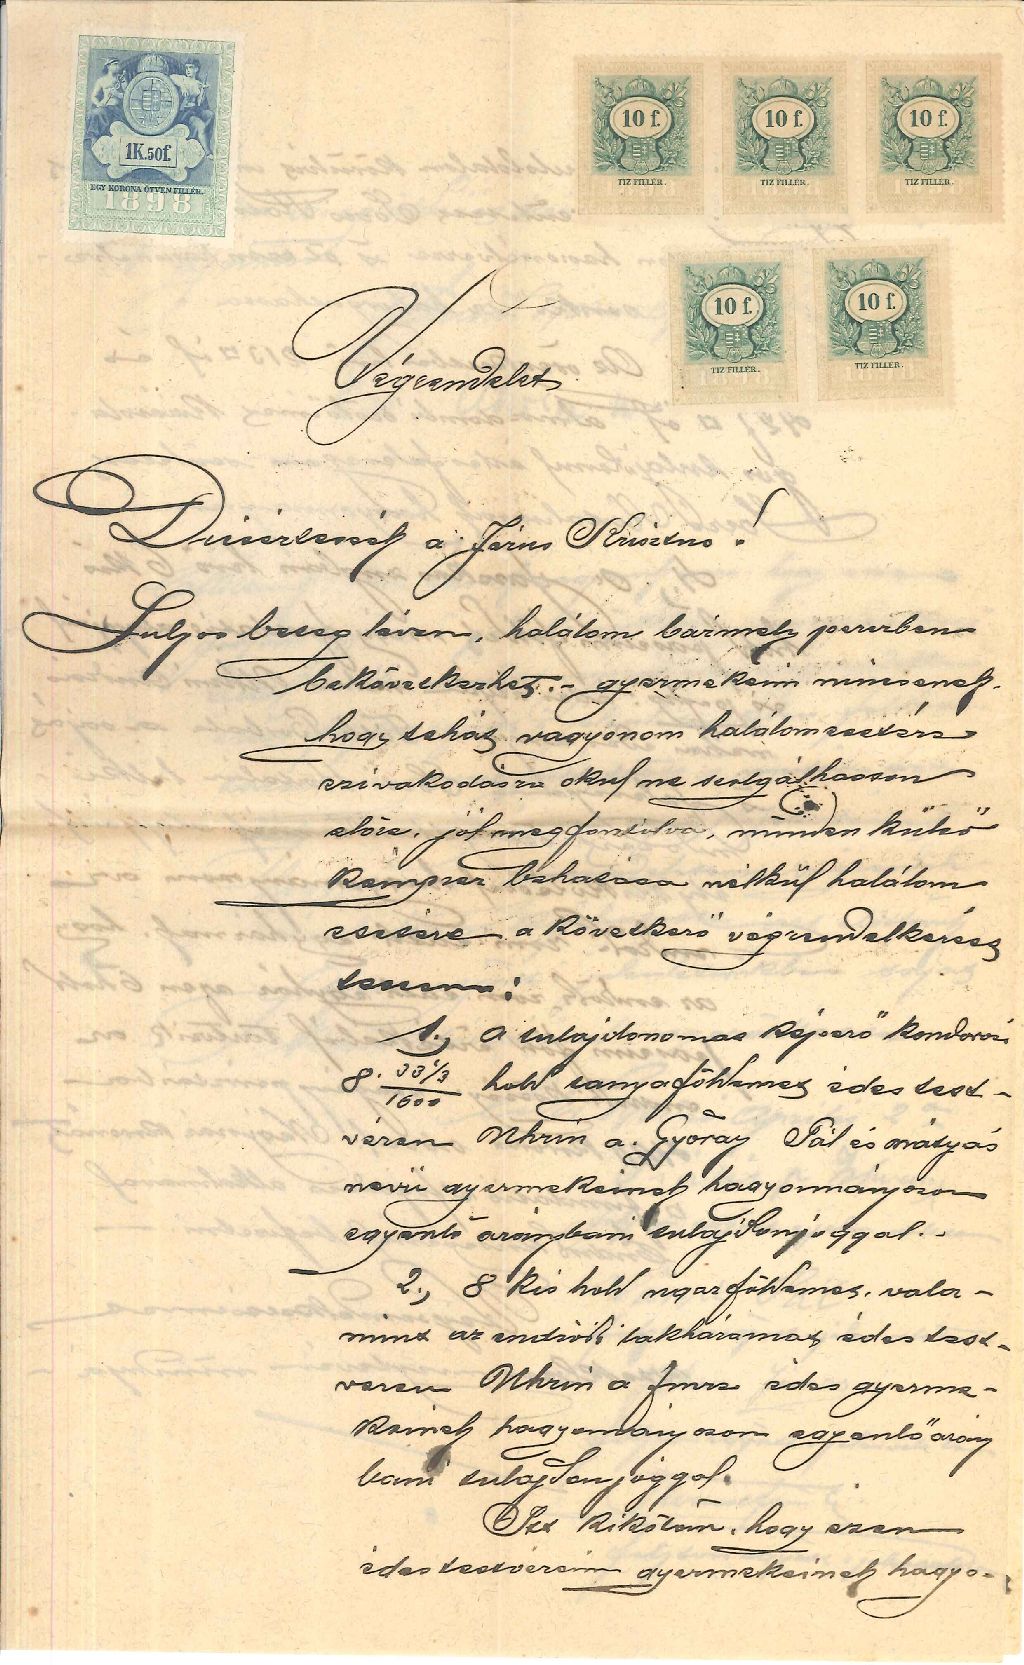 1K.50f.
EGY KORONA ÖTVEN FILLÉR.
1898
10 f.
TIZ FILLÉR.
10 f.
TIZ FILLÉR.
10 f.
TIZ FILLÉR.
10 f.
TIZ FILLÉR.
10 f.
TIZ FILLÉR.
Végrendelet
Dicsértessék a Jézus Krisztus!
Sulyos beteg lévén, halálom bármely perczben
bekövetkezhet. – gyermekeim nincsenek,
hogy tehát vagyonom halálom esetére
czivakodásra okul ne szolgálhasson
előre, jól megfontolva, minden külső
kényszer behatása nélkül halálom
esetére a következő végrendelkezést
teszem:
1., A tulajdonomat képező kondorosi
8 33 1/3 / 1600 hold tanyaföldemet édes test-
vérem Uhrin a. György Pál és Mátyás
nevü gyermekeinek hagyományozom
egyenlő aránybani tulajdonjoggal. -
2., 8 kis hold ugarföldemet, vala-
mint az endrődi lakházamat édes test-
vérem Uhrin a Imre édes gyerme-
keinek hagyományozom egyenlő arány
bani tulajdonjoggal.
Azt kikötöm, hogy ezen
édes testvéreim gyermekeinek hagyo-